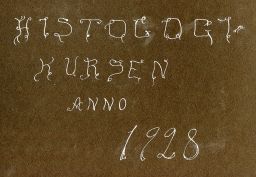 HISTOLOGI-
KURSEN
ANNO
1928